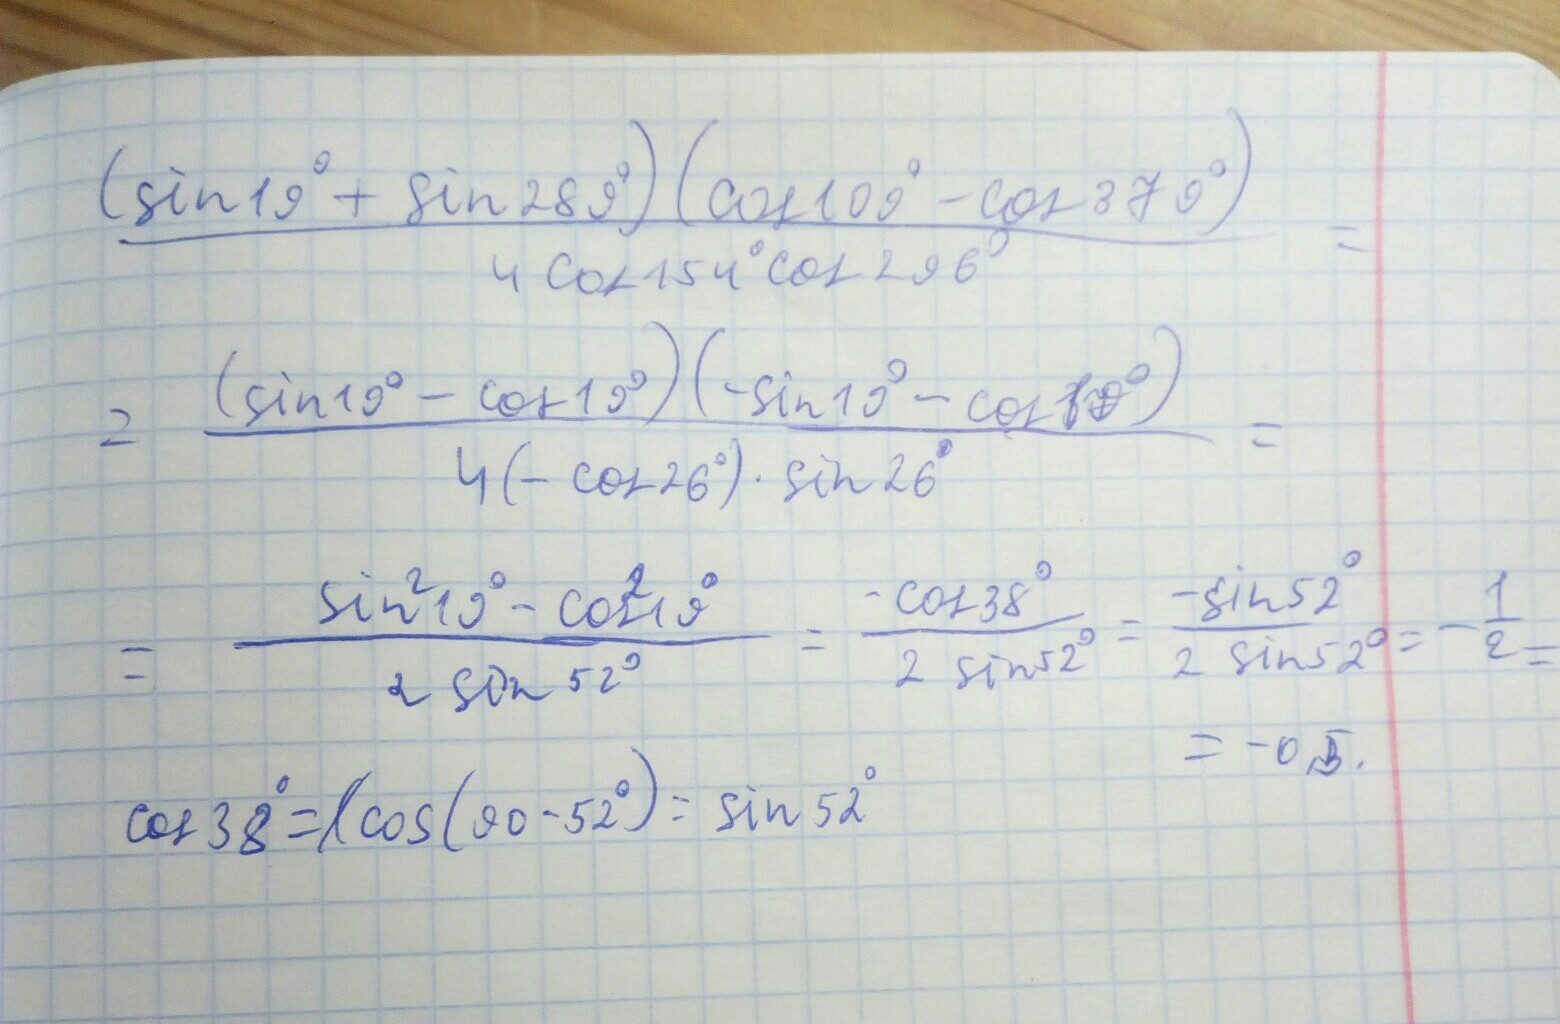 (sin19° + sin289°)(cos109° - cos379°) / 4cos154°cos296° =
= (sin19° - cos19°)(-sin19° - cos19°) / 4(-cos26°)·sin26° =
= sin²19° - cos²19° / 2 sin52° = -cos38° / 2 sin52° = -sin52° / 2 sin52° = -1/2 =
= -0,5.
cos38° = (cos(90-52°) = sin52°